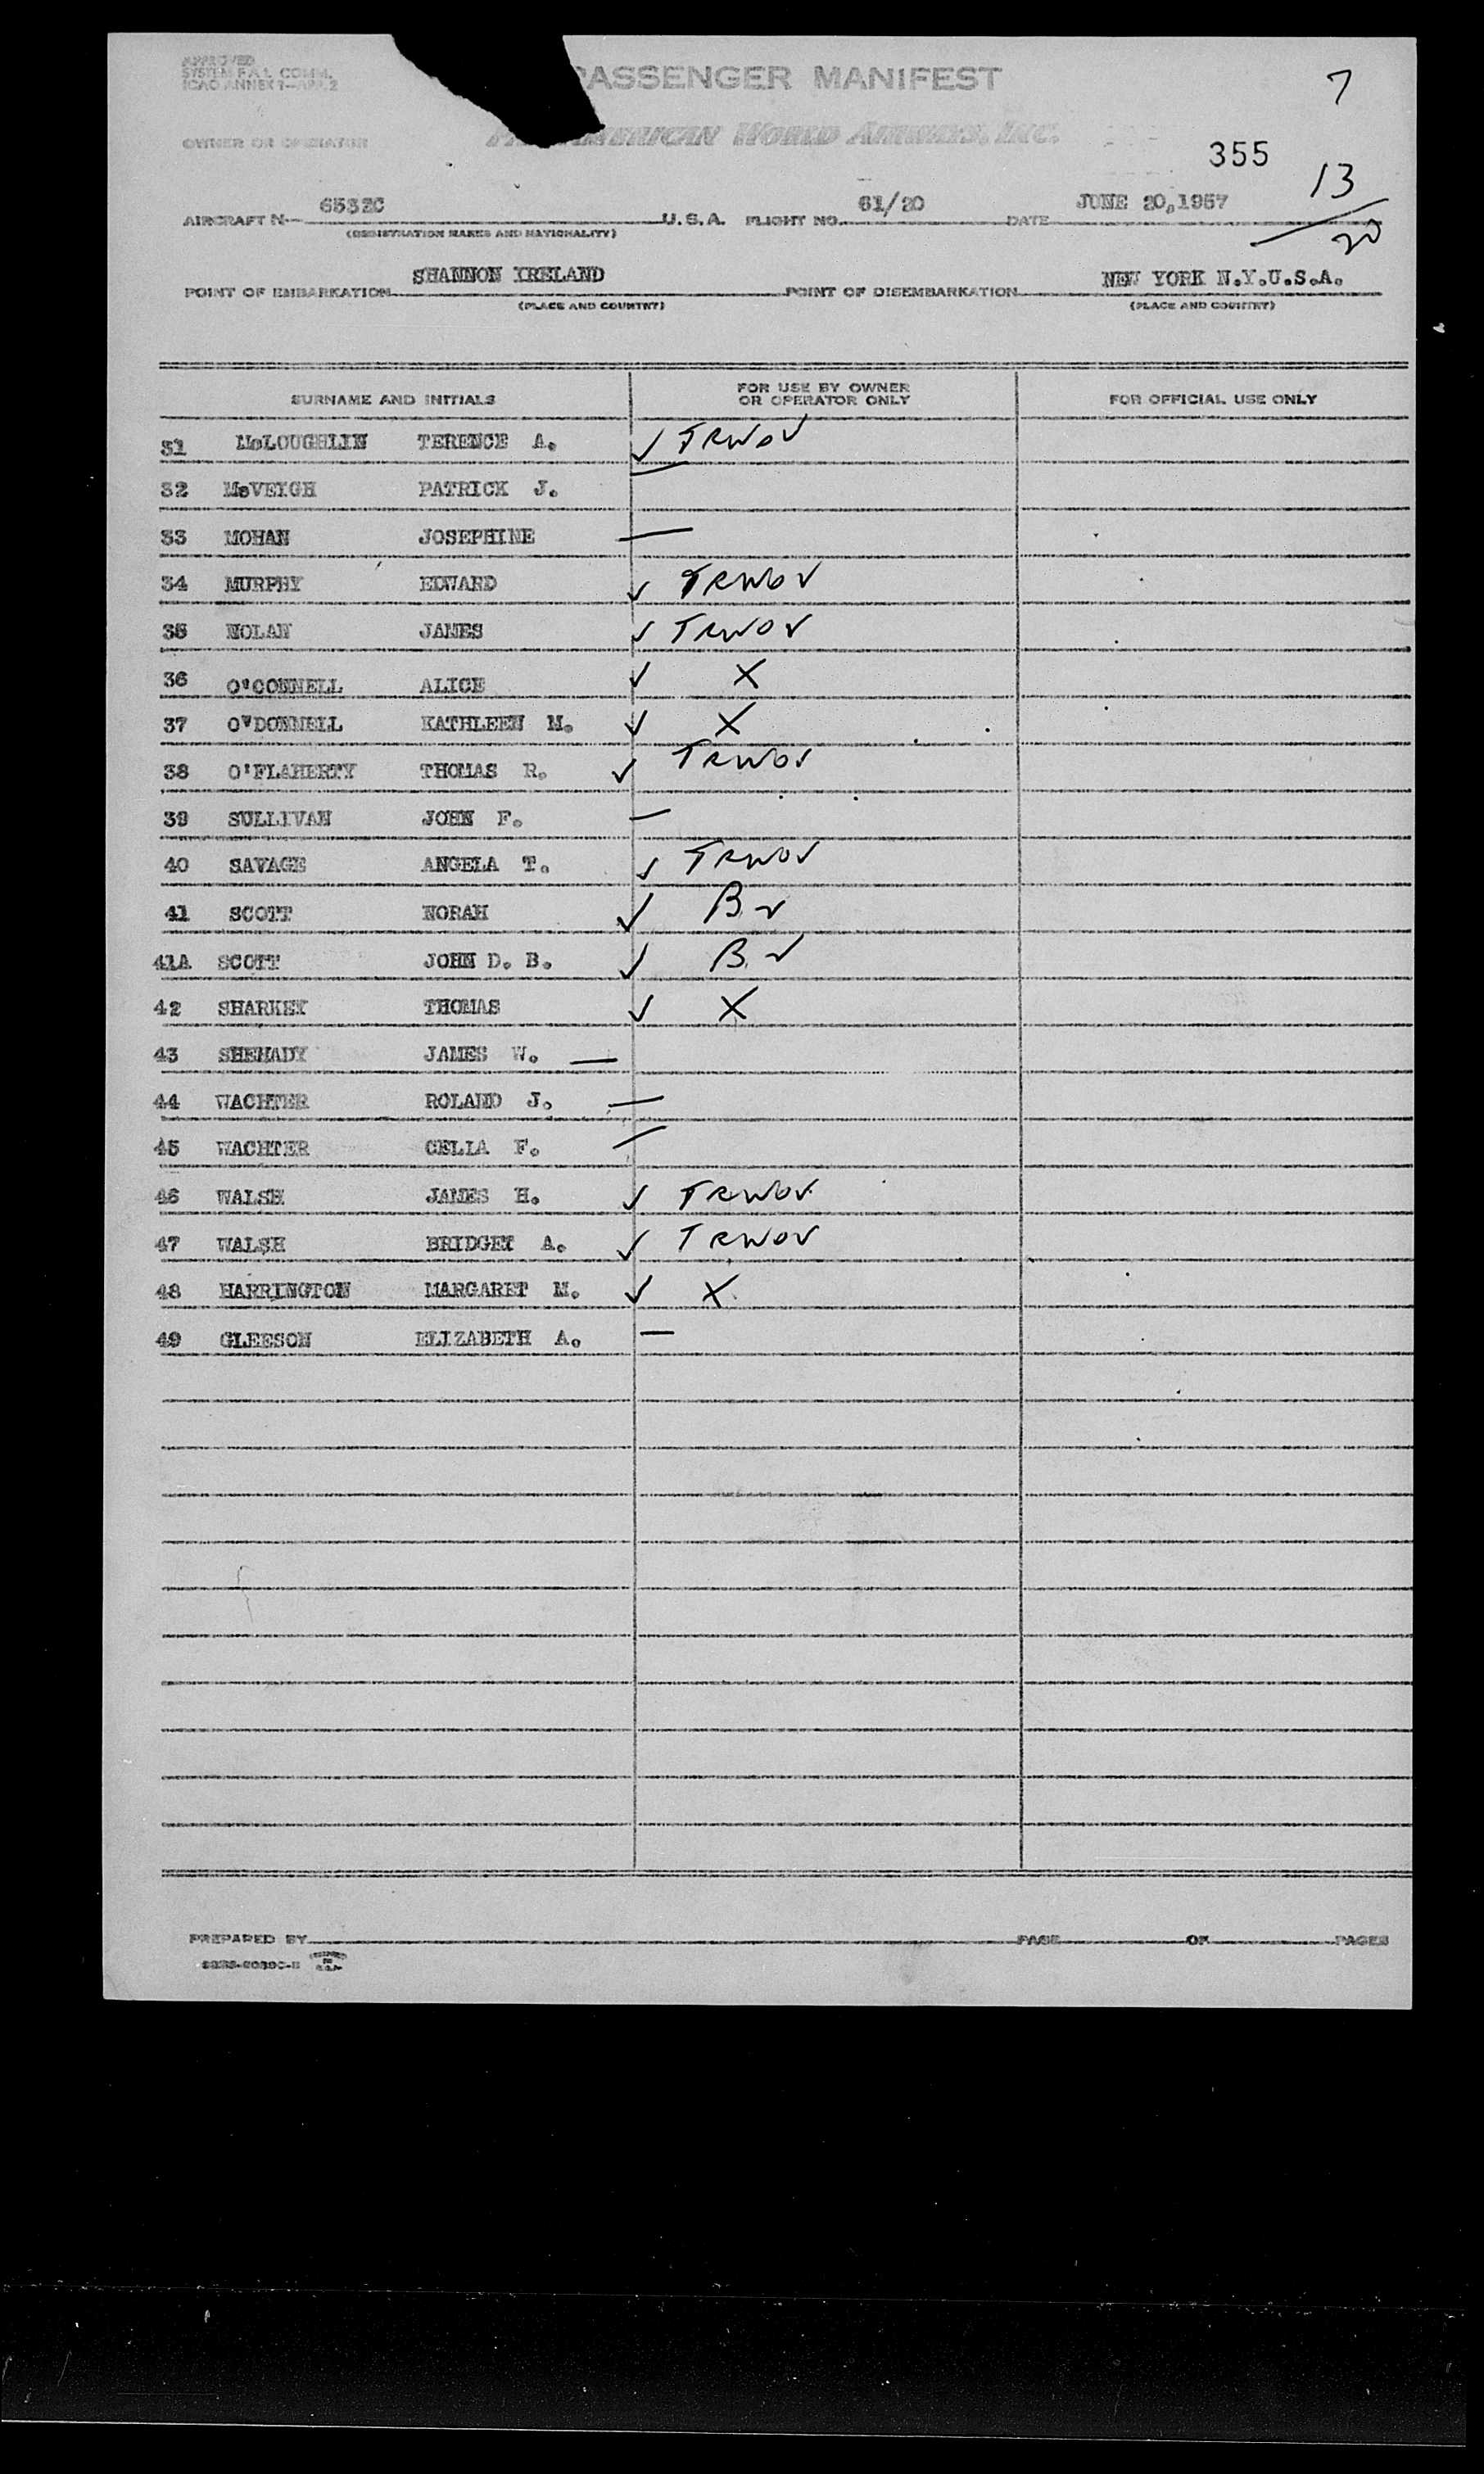 APPROVED
SYSTEM F.A.L. COMM.
ICAO ANNEX 9—APP. 2
PASSENGER MANIFEST
7
OWNER OR OPERATOR
AMERICAN WORLD AIRWAYS, INC.
355
13/20
AIRCRAFT N— 6532C U.S.A. FLIGHT NO. 61/20 DATE JUNE 20,1957
(REGISTRATION MARKS AND NATIONALITY)
POINT OF EMBARKATION SHANNON IRELAND POINT OF DISEMBARKATION NEW YORK N.Y.U.S.A.
(PLACE AND COUNTRY) (PLACE AND COUNTRY)
SURNAME AND INITIALS FOR USE BY OWNER OR OPERATOR ONLY FOR OFFICIAL USE ONLY
31 McLOUGHLIN TERENCE A. ✓ TRWOV
32 McVEIGH PATRICK J. —
33 MOHAN JOSEPHINE —
34 MURPHY EDWARD ✓ TRWOV
35 NOLAN JAMES ✓ TRWOV
36 O'CONNELL ALICE ✓ X
37 O'DONNELL KATHLEEN M. ✓ X
38 O'FLAHERTY THOMAS R. ✓ TRWOV
39 SULLIVAN JOHN F. —
40 SAVAGE ANGELA T. ✓ TRWOV
41 SCOTT NORAH ✓ B ✓
41A SCOTT JOHN D. B. ✓ B ✓
42 SHARKEY THOMAS ✓ X
43 SHEHADY JAMES W. —
44 WACHTER ROLAND J. —
45 WACHTER CELIA F. —
46 WALSH JAMES H. ✓ TRWOV
47 WALSH BRIDGET A. ✓ TRWOV
48 HARRINGTON MARGARET M. ✓ X
49 GLEESON ELIZABETH A. —
PREPARED BY PAGE OF PAGES